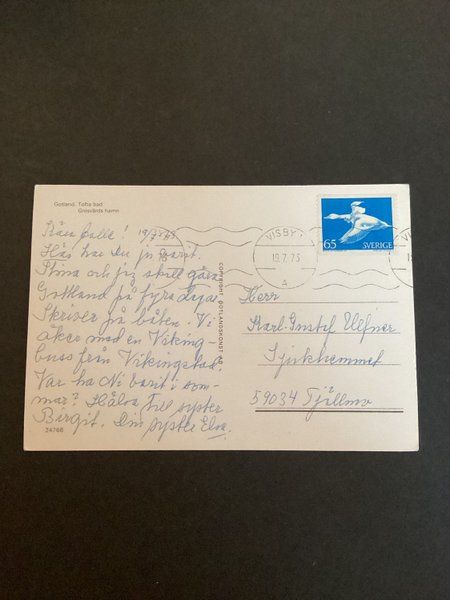 Gotland. Tofta bad
Gnisvärds hamn
Kära Kalle! 19/7-73
Här har Du ju varit.
Stina och jag skall göra
Gottland på fyra dagar
Skriver på båten. Vi
åker med en Viking-
buss från Vikingstad.
Var ha Ni varit i som-
mar? Hälsa till syster
Birgit. Din syster Elsa.
24766
COPYRIGHT: GOTLANDSKONST AB
65 SVERIGE
VISBY 1
19.7.73
A
Herr
Karl-Gustaf Ulfner
Sjukhemmet
59034 Tjällmo